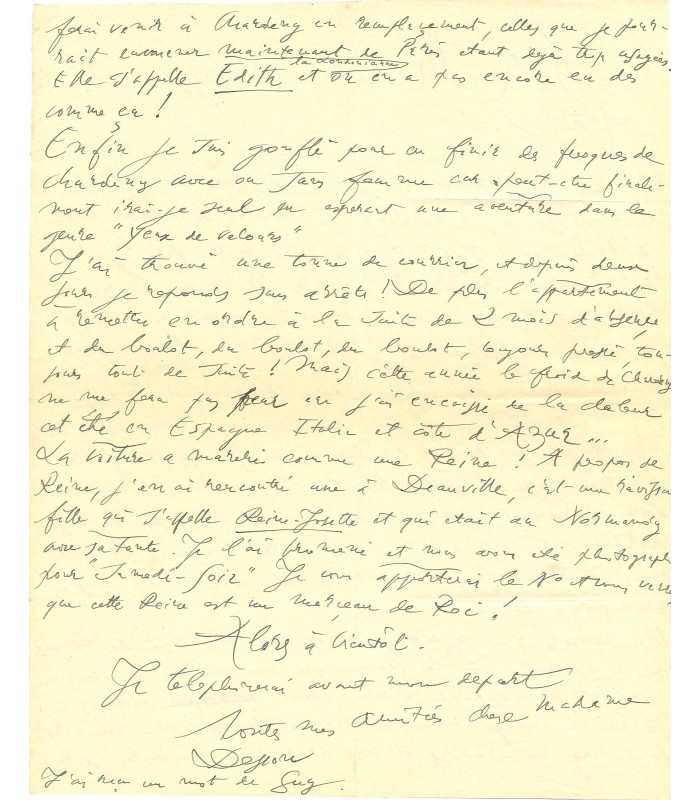 ferai venir à Chardeny en remplacement, celles que je pour-
rait emmener maintenant de Paris etant dejà trop usagées.
Elle s'appelle Edith la Londonienne et on en a pas encore eu des
comme ça !
Enfin je suis gonflé pour en finir des fresques de
Chardeny avec ou sans femme car peut-etre finale-
ment irai-je seul en esperant une aventure dans le
genre "Yeux de velours"
J'ai trouvé une tonne de courrier, et depuis deux
jours je reponds sans arrêts ! De plus l'appartement
à remettre en ordre à la suite de 2 mois d'absence,
et du boulot, du boulot, du boulot, toujours pressé, tou-
jours tout de suite ! Mais cette année le froid de Chardeny
ne me fera pas peur car j'ai encaissé de la chaleur
cet été en Espagne Italie et côte d'Azur...
La voiture a marché comme une Reine ! A propos de
Reine, j'en ai rencontré une à Deauville, c'est une ravissan
fille qui s'appelle Reine-Josette et qui etait au Normandy
avec sa tante. Je l'ai promené et nous avons été photograph
pour "Samedi-Soir" Je vous apporterai le No et vous verr
que cette Reine est un morceau de Roi !
Alors à bientôt.
Je telephonerai avant mon depart
Toutes mes amitiés chere Madame
J'ai reçu un mot de Guy.